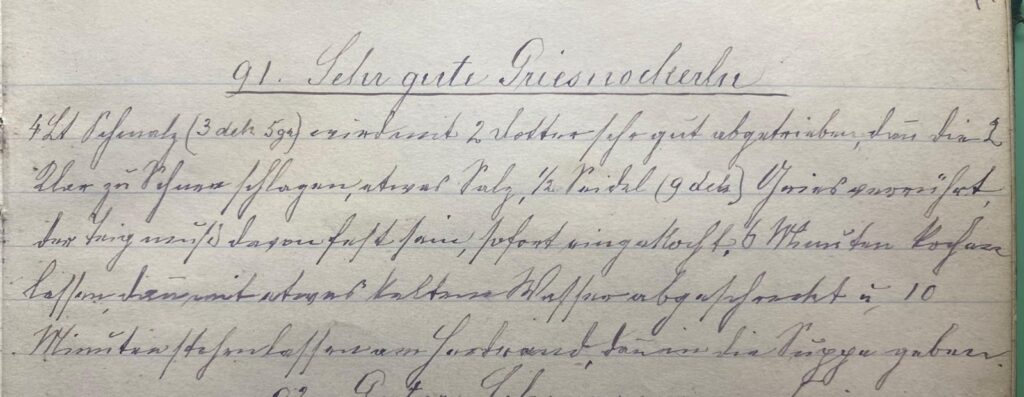 91. Sehr gute Griesnockerln
4 Lt Schmalz (3 dek 5 gr) wird mit 2 Dotter sehr gut abgetrieben, dan̄ die 2
Klar zu Schnee schlagen, etwas Salz, ½ Seidel (9 dek) Gries verrührt,
der Teig muß davon fest sein, sofort eingekocht, 6 Minuten kochen
lassen, dan̄ mit etwas kalten Wasser abgeschreckt u, 10
Minuten stehen lassen am Herdrand, dan̄ in die Suppe geben.
92.